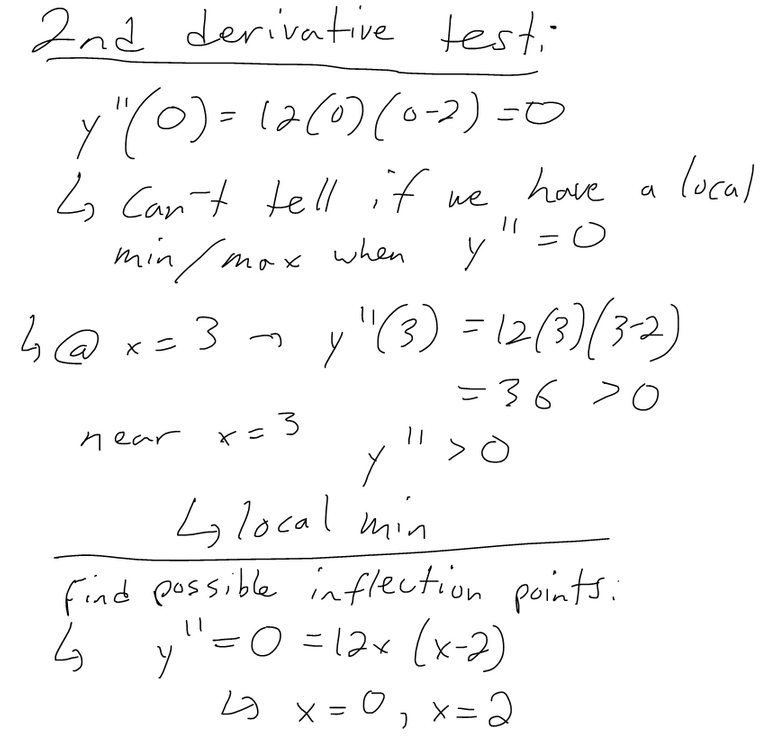 2nd derivative test:
y''(0) = 12(0)(0-2) = 0
↳ Can't tell if we have a local
min/max when y'' = 0
↳ @ x = 3 → y''(3) = 12(3)(3-2)
= 36 > 0
near x = 3 y'' > 0
↳ local min
Find possible inflection points:
↳ y'' = 0 = 12x (x-2)
↳ x = 0, x = 2